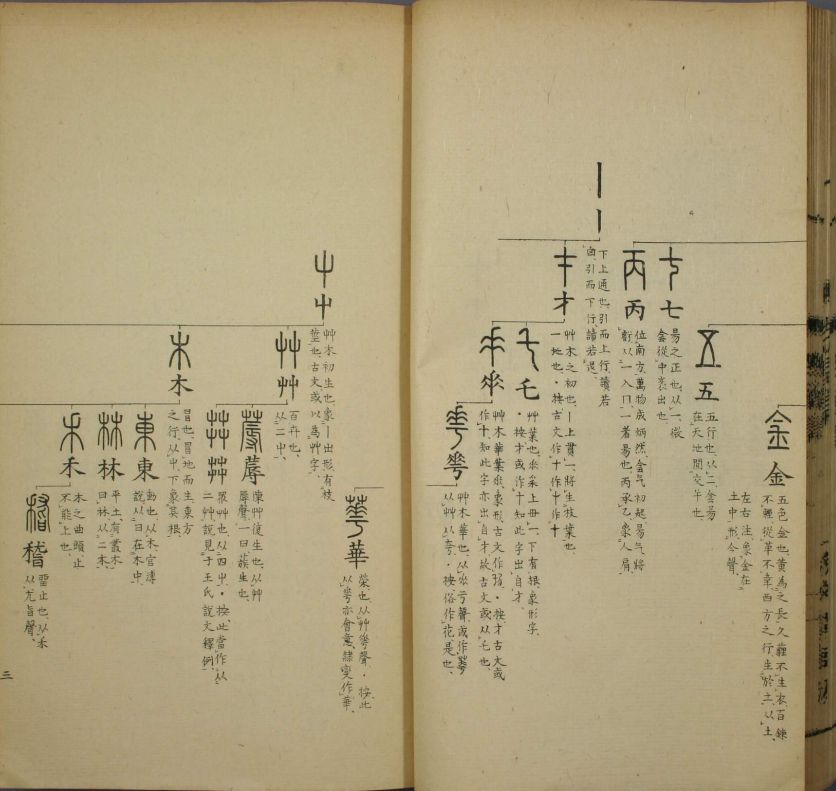 金金
五色金也、黃為之長久薶不生衣、百鍊
不輕、從革不韋、西方之行、生於土、从土、
左右注、象金在
土中形、今聲、
五五
五行也、从二、侌易
在天地閒交午也、
七七
易之正也、从一、微
侌從中衺出也、
丙丙
位南方、萬物成炳然、侌气初起、易气將
虧、从一入冂、一者易也、丙承乙、象人肩、
丨丨
下上通也、引而上行、讀若
囟、引而下行、讀若𨓤、
才才
艸木之初也、丨上貫一、將生枝葉也、
一地也・按古文作十作十作十
乇乇
艸葉也、𠂹采上毌一、下有根、象形字、
・按才或作十知此字出自才
𠂹𠂹
艸木華葉𠂹、象形、古文作・按才古文或
作十、知此字亦出自才故古文或从乇也、
𠌶𠌶
艸木華也、从𠂹亏聲、或作𦾓
从艸从夸・按俗作花是也、
華華
榮也、从艸𠌶聲・按此
从𠌶亦會意、隸變作華、
屮屮
艸木初生也、象丨出形、有枝
莖也、古文或以為艸字、
艸艸
百芔也、
从二屮、
蓐蓐
陳艸復生也、从艸
辱聲、一曰蔟生也、
茻茻
眾艸也、从四屮・按此當作从
二艸說見于王氏說文釋例、
木木
冒也、冒地而生、東方
之行、从屮、下象其根、
東東
動也、从木、官溥
說、从日在木中、
林林
平土有叢木
曰林、从二木、
禾禾
木之曲頭、止
不能上也、
稽稽
畱止也、从禾
从尤旨聲、
三